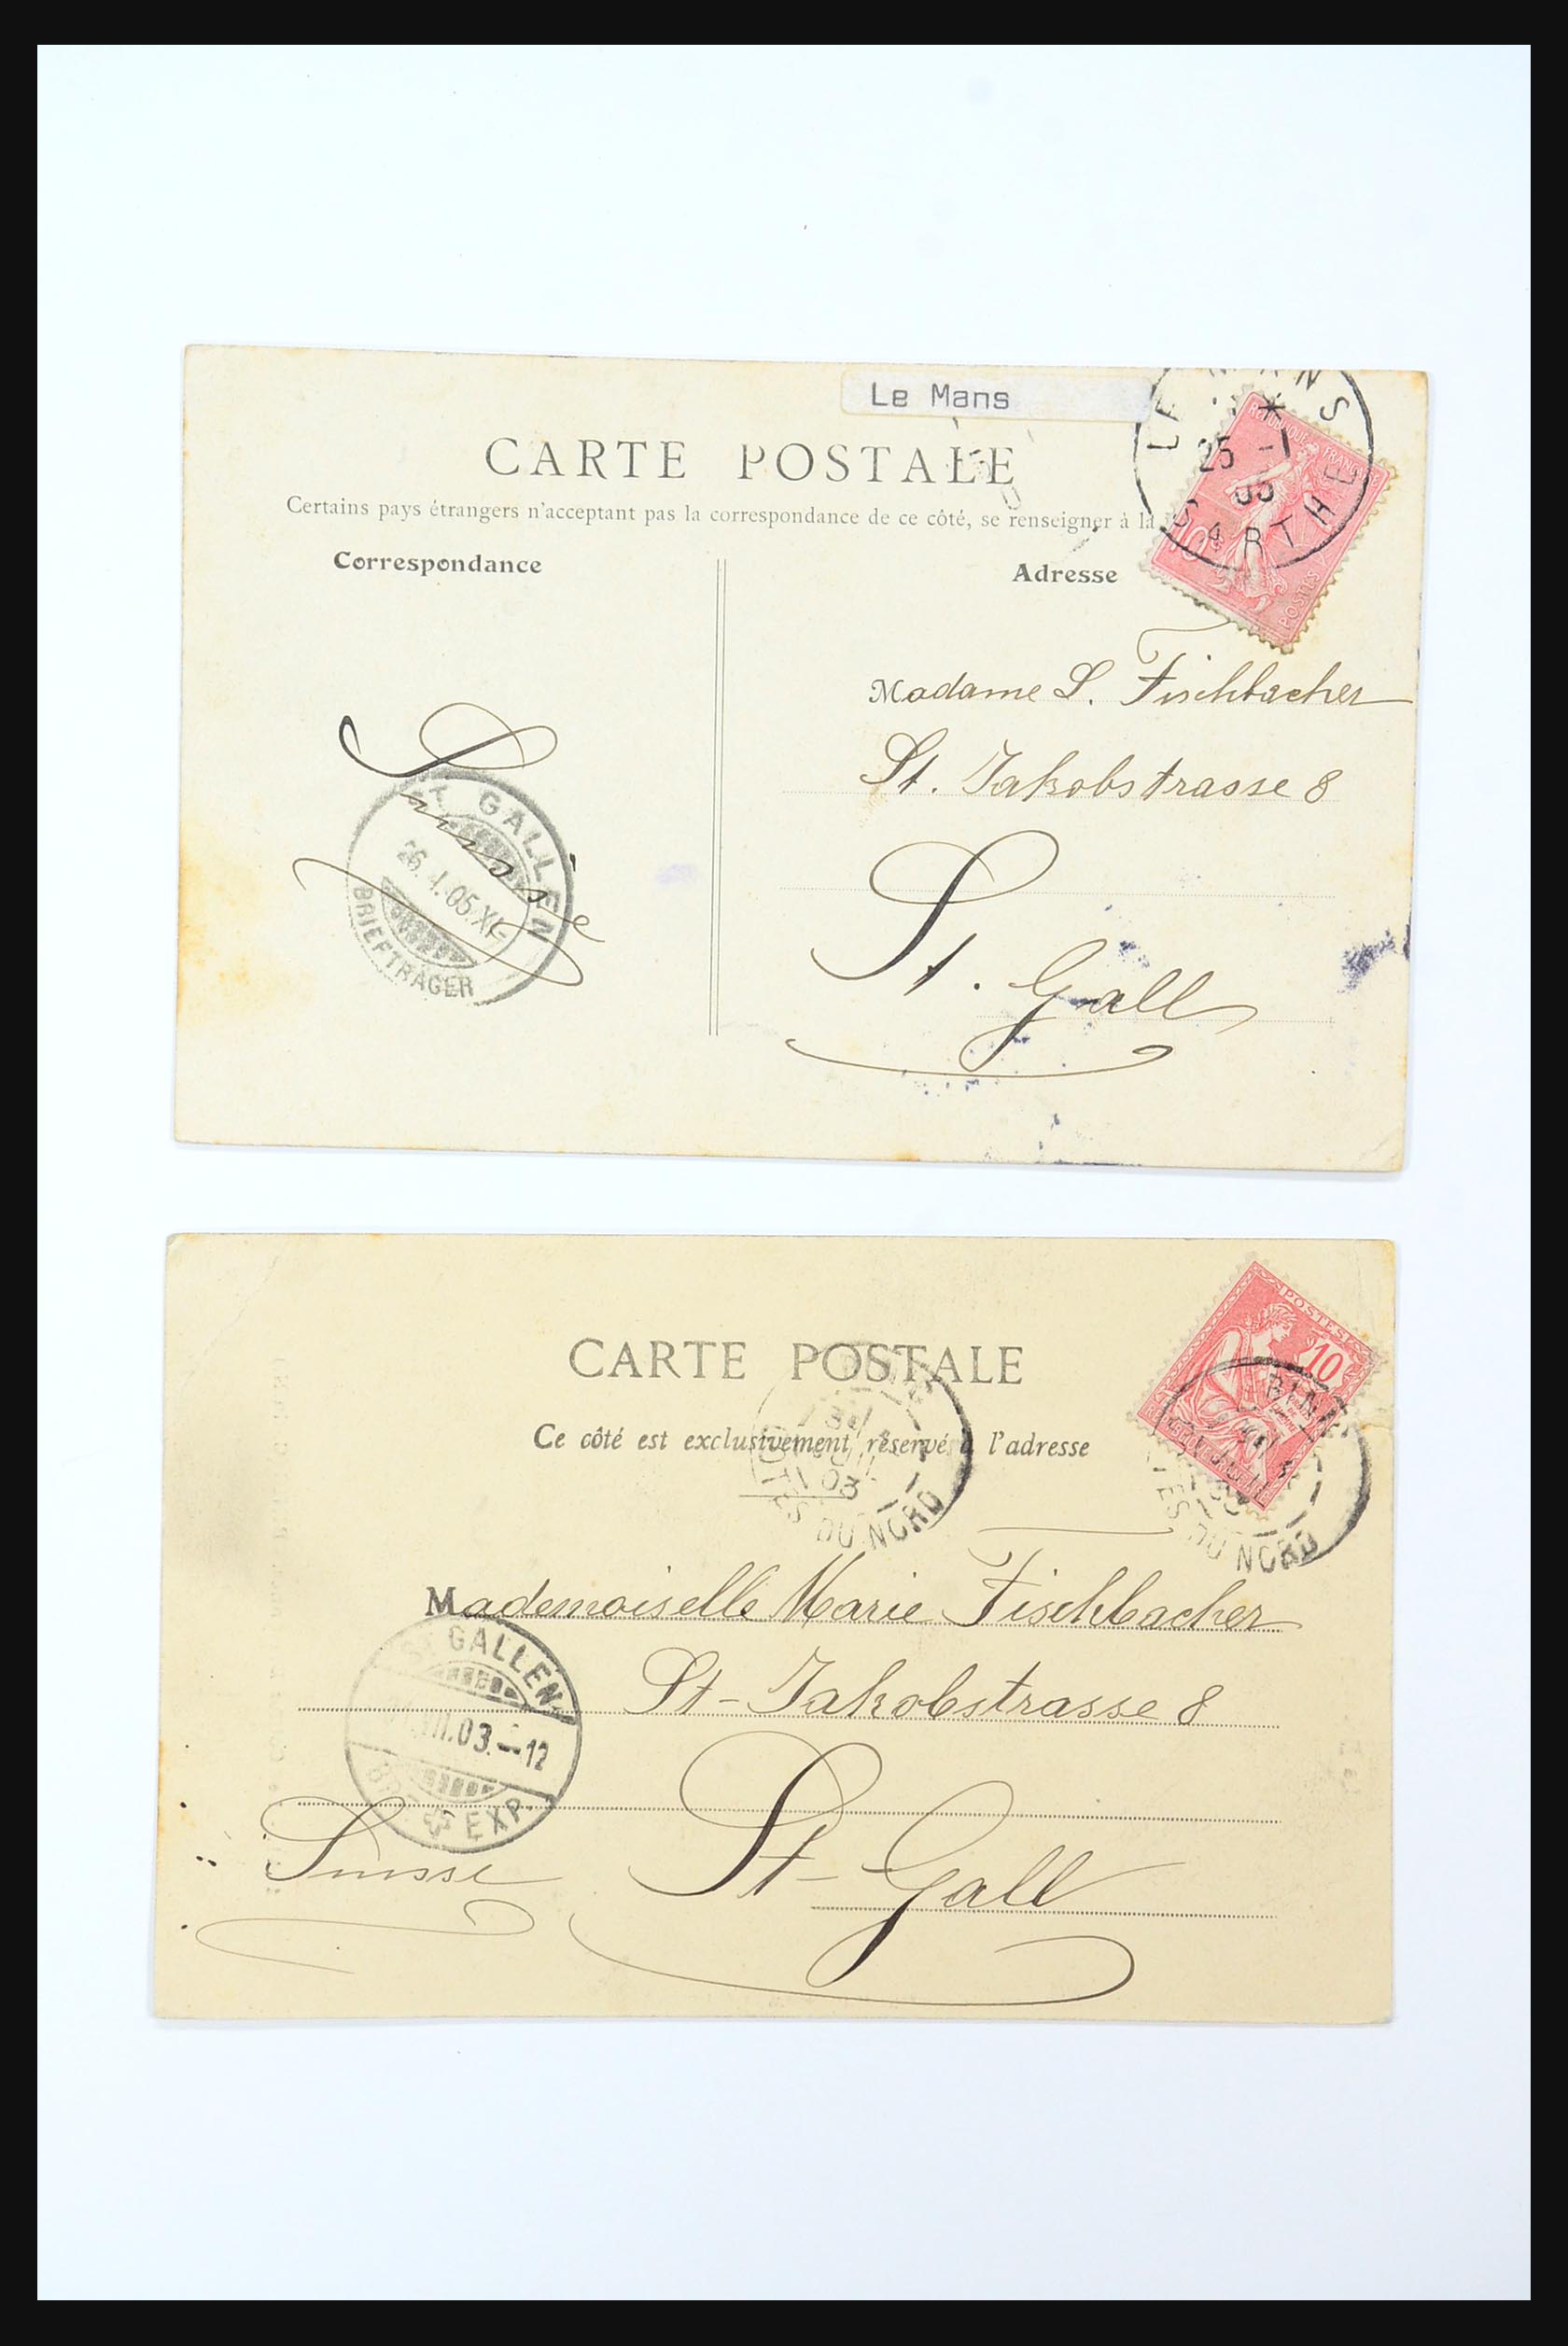 Le Mans
LE MANS
25 -1
05
SARTHE
REPUBLIQUE FRANÇAISE
10c
POSTES
CARTE POSTALE
Certains pays étrangers n'acceptant pas la correspondance de ce côté, se renseigner à la
Correspondance
Adresse
Madame S. Fischbacher
St. Jakobstrasse 8
St. Gall
Suisse
ST. GALLEN
26. 1. 05. XI-
BRIEFTRÄGER
POSTES
10
CARTE POSTALE
Ce côté est exclusivement réservé à l'adresse
03
DU NORD
DU NORD
Mademoiselle Marie Fischbacher
St-Jakobstrasse 8
St-Gall
Suisse
ST. GALLEN
03.-12
EXP.